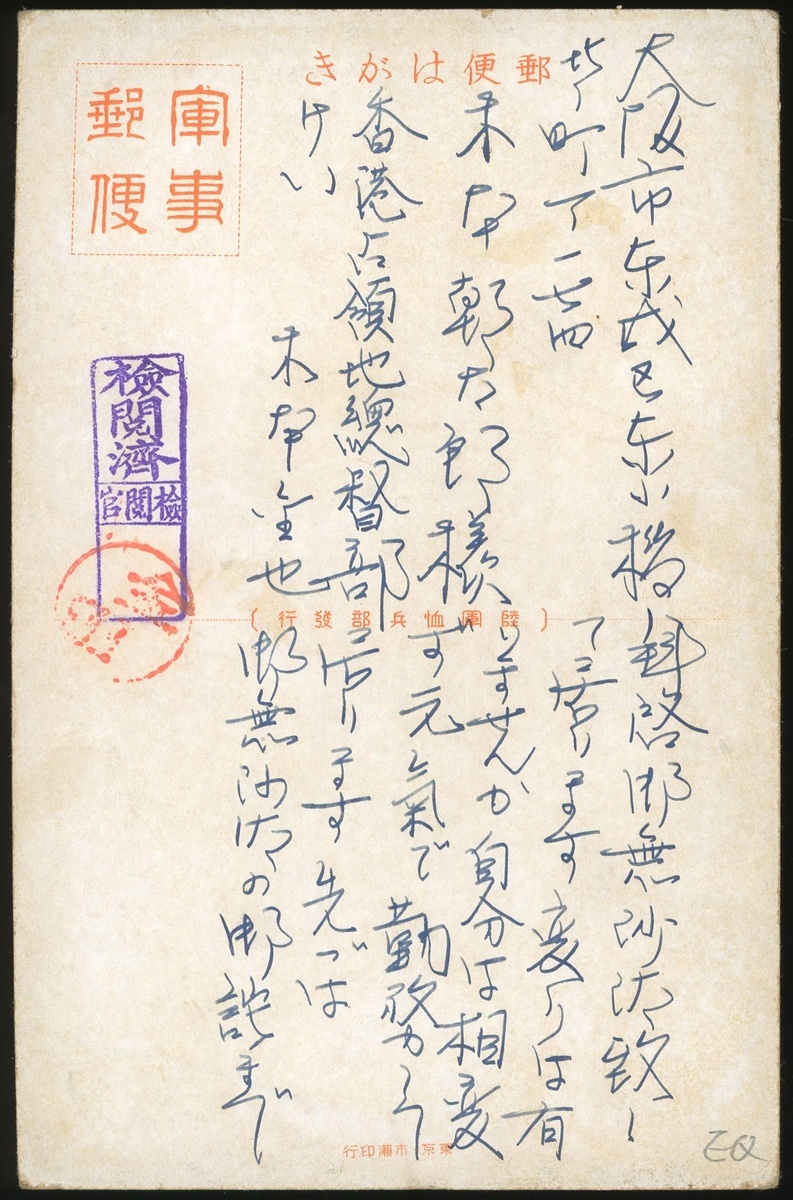 郵便はがき
軍事
郵便
大阪市東成区東小橋
北ノ町一ノ一七四
木村朝太郎様
香港占領地總督部
けい
木村金也
檢閲濟
檢閲官
陸軍恤兵部發行
拝啓御無沙汰致し
て居ります変りは有
りませんか自分は相変
らず元氣で勤務して
居ります先づは
御無沙汰の御詫まで
東京 市瀬印行
EQ